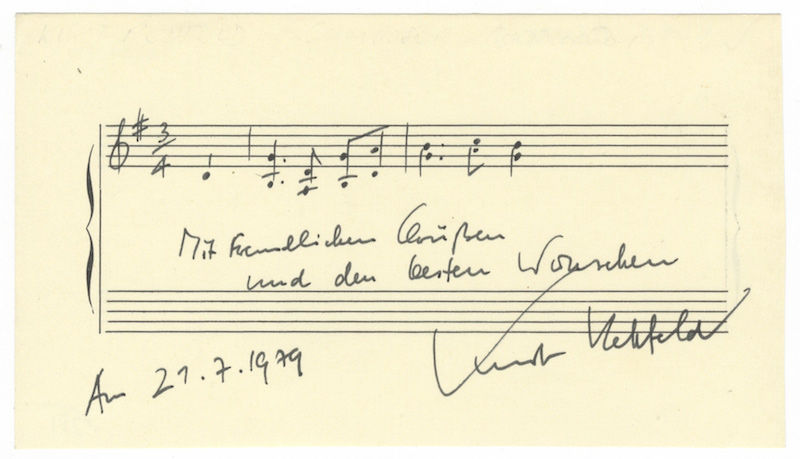 3
4
Mit freundlichen Grüßen
und den besten Wünschen
Am 21.7.1979
Kurt Rehfeld